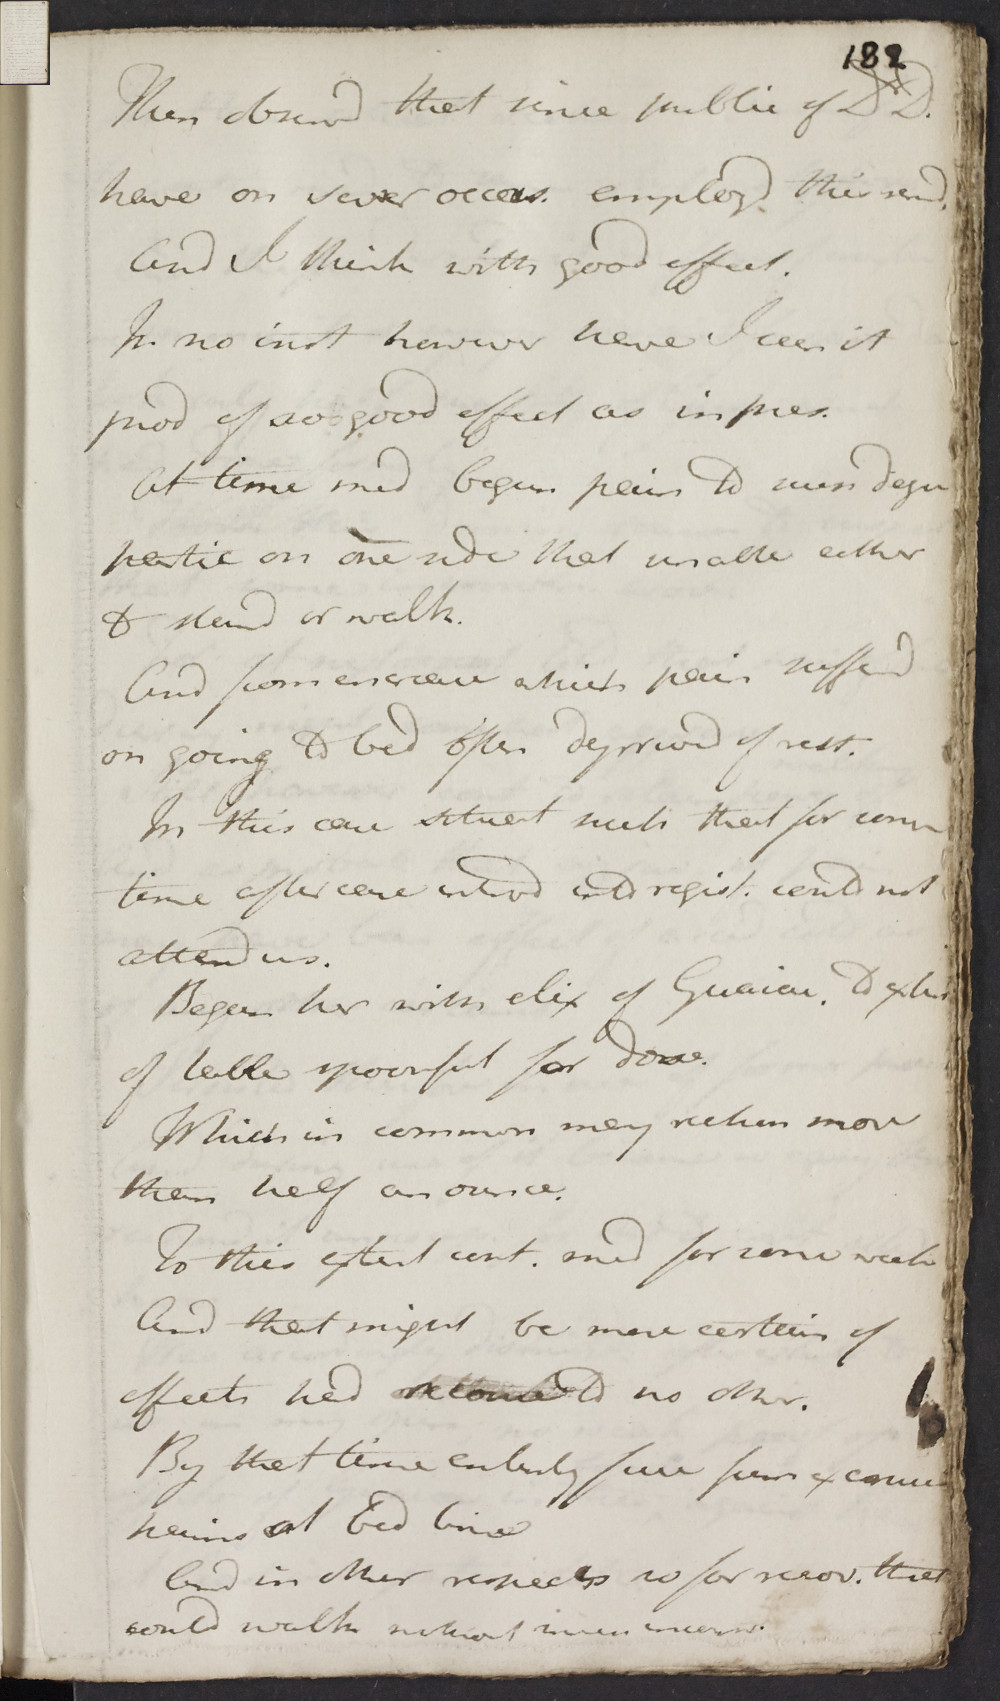 182
Then observd that since public of D D.
have on sever occas. employd this rem.
And I think with good effect.
In no inst however have I seen it
prod of so good effect as in pres.
At time med begun pain to such degr
partic on one side that unable either
to stand or walk.
And from encrease which pain sufferd
on going to bed often deprived of rest.
In this case situat such that for some
time after case introd into regist. could not
attend us.
Began her with elix of Guaiac. to ext
of table spoonful for dose.
Which in common may reckon more
than half an ounce.
To this extent cont. med for some week
And that might be more certain of
effects had to no other.
By that time entirely free from
pains at bed time
And in other respects so far recov. that
could walk without